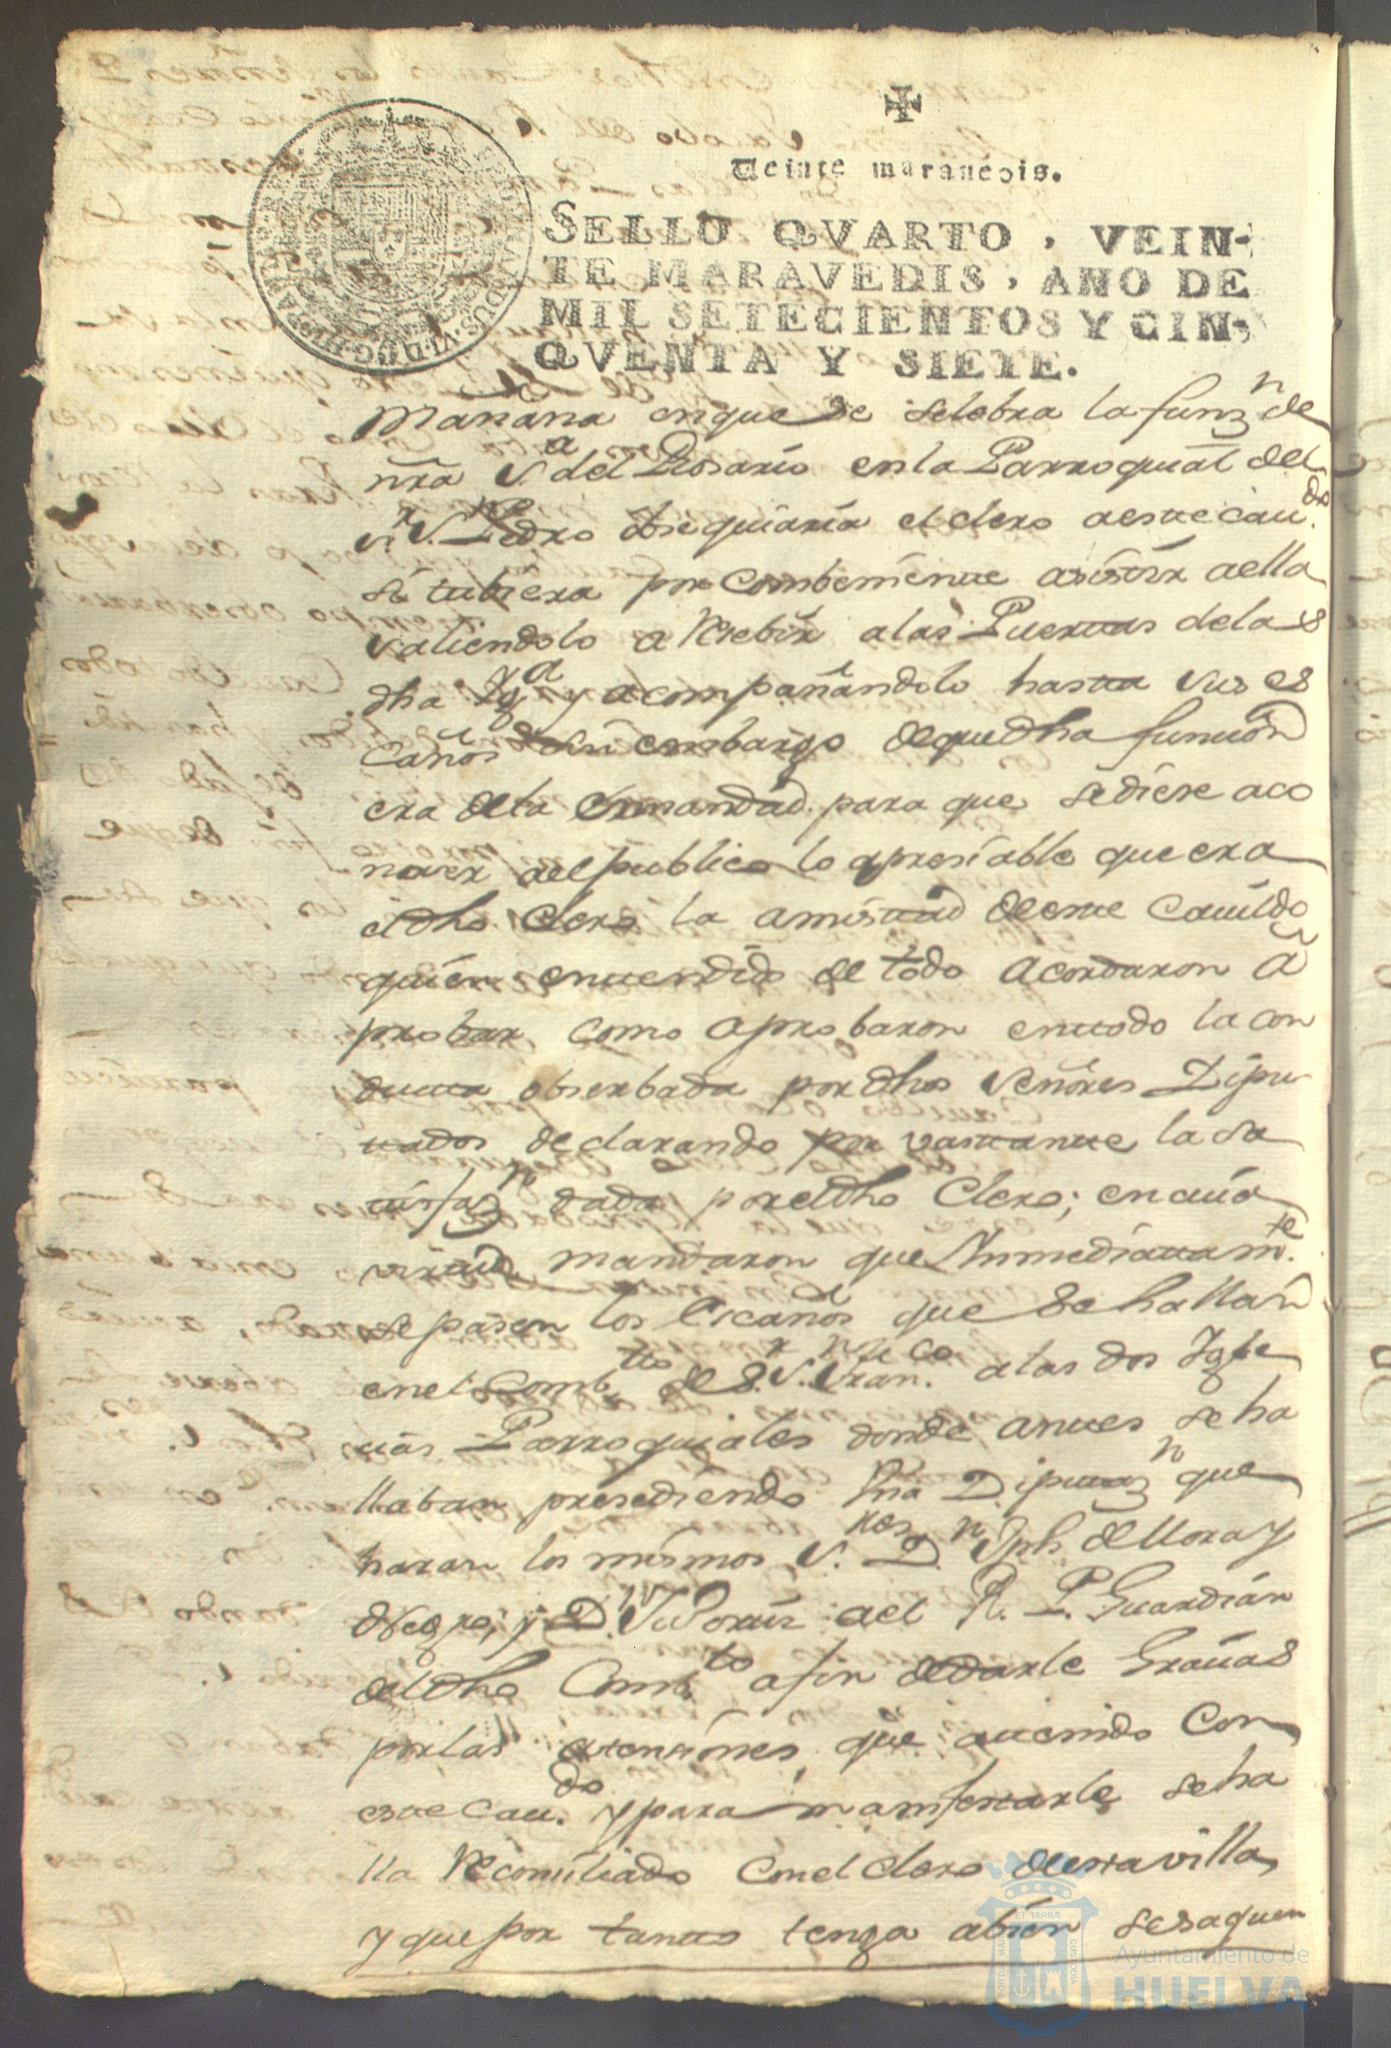 ✠
Veinte marauedis.
SELLO QVARTO, VEIN-
TE MARAVEDIS, AÑO DE
MIL SETECIENTOS Y CIN-
QVENTA Y SIETE.
Mañana enque se selebra la funz.n de
nra S.a del Rosario enla Parroquial del
S.r S.n Pedro obsequiaria el clero aeste cau.do
si tubiera por combeniente asistir aella
saliendolo a Resebir alas Puertas dela
dha Yg.a y acompañandolo hasta sus es
caños sin embargo deque dha funcion
era dela Ermandad para que sediese aco
noser alpublico lo apresiable que era
aldho clero la amistad deeste Cauildo
quien entendido de todo acordaron a
probar como aprobaron entodo la con
ducta obserbada pordhos Señores Dipu
tados declarando por vastante la sa
tisfaz.n dada poreldho Clero; encuia
virtud mandaron que Inmediatam.te
sepasen los Escaños que se hallan
enel Comb.to de S.r S.n Fran.co alas dos Ygle
sias Parroquiales donde antes seha
llaban presediendo Una Diputaz.n que
haran los mismos S.res D.n Jph. de Mora y
Negro; y D.n
ael R. P. Guardian
deldho Comb.to afin dedarle Gracias
porlas atensiones que atenido Con
este Cau.do y para manifestarle seha
lla Reconciliado Conel clero deesta villa,
y que por tanto tenga abien sesaquen
Ayuntamiento de
HUELVA